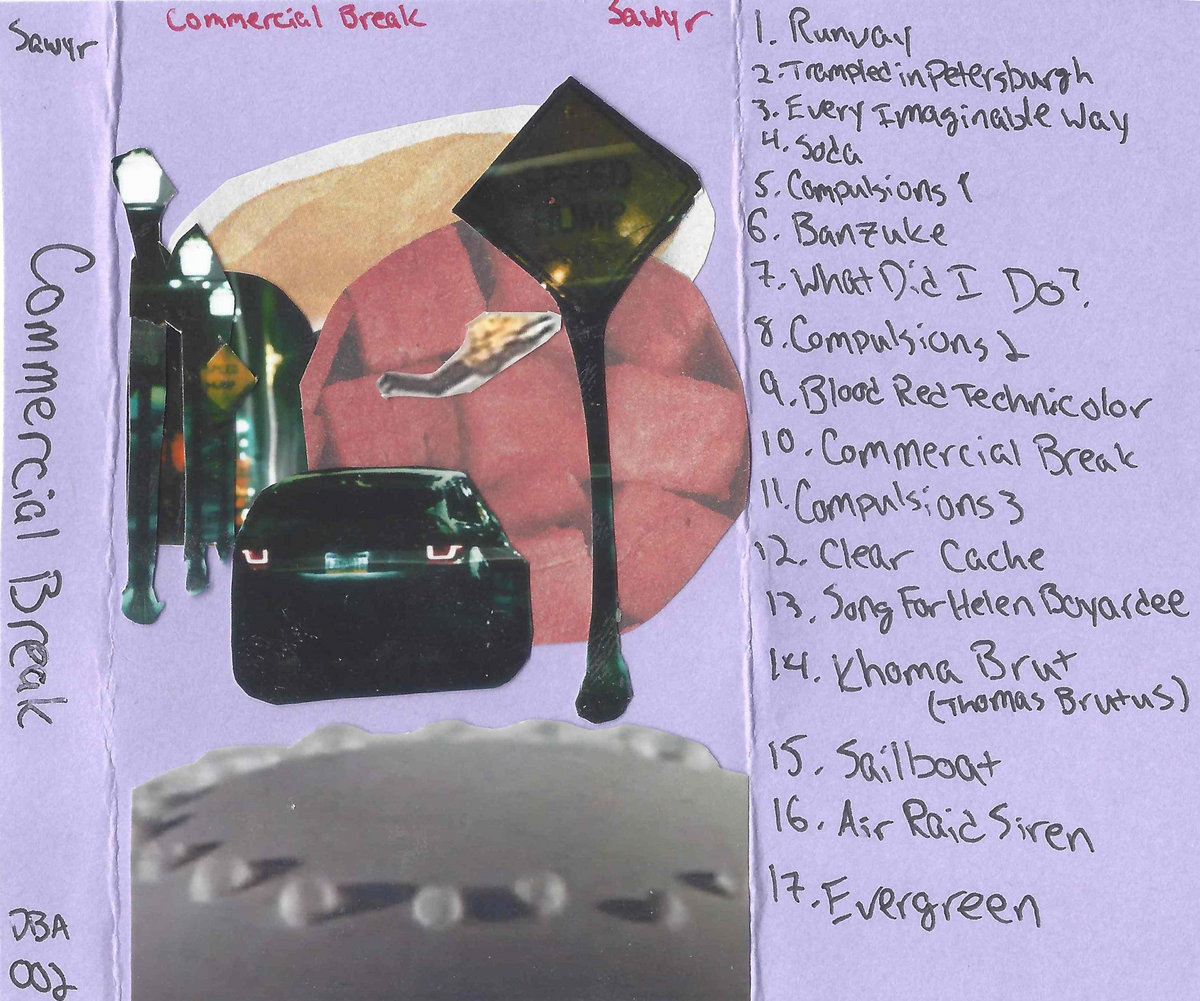 Sawyr
Commercial Break
DBA
002
Commercial Break
Sawyr
SPEED
HUMP
1. Runway
2. Trampled in Petersburgh
3. Every Imaginable Way
4. Soda
5. Compulsions 1
6. Banzuke
7. What Did I Do?
8. Compulsions 2
9. Blood Red Technicolor
10. Commercial Break
11. Compulsions 3
12. Clear Cache
13. Song For Helen Boyardee
14. Khoma Brut
(Thomas Brutus)
15. Sailboat
16. Air Raid Siren
17. Evergreen